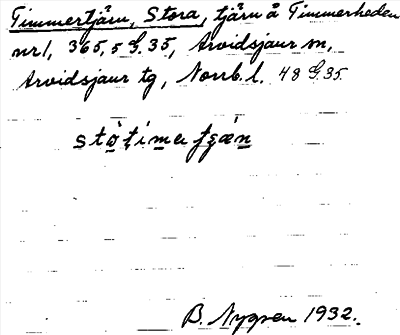 Timmertjärn, Stora, tjärn å Timmerheden
nr 1, 365,5 G.35, Arvidsjaur sn,
Arvidsjaur tg, Norrb. l. 48 G.35.
B. Nygren 1932.